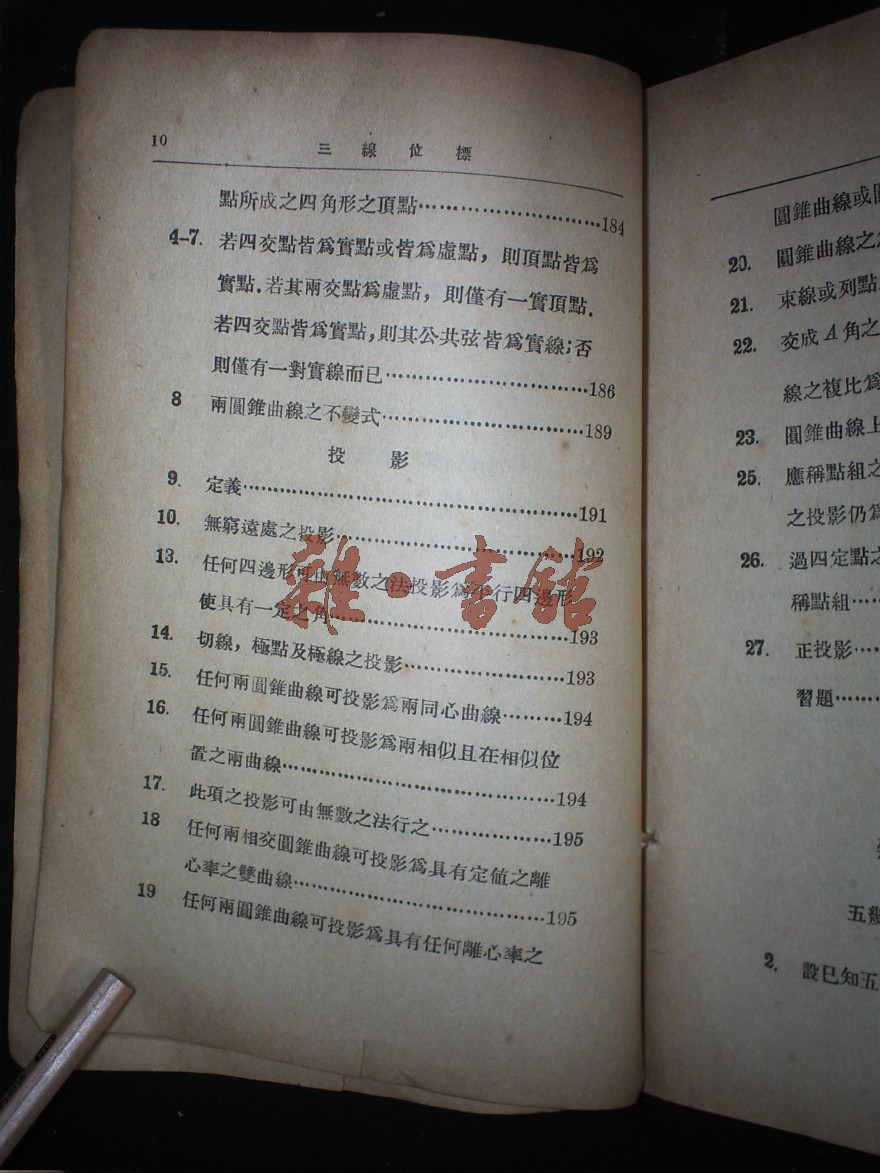 10
三線位標
點所成之四角形之頂點……………………184
4-7. 若四交點皆爲實點或皆爲虛點，則頂點皆爲
實點.若其兩交點爲虛點，則僅有一實頂點.
若四交點皆爲實點,則其公共弦皆爲實線;否
則僅有一對實線而已……………………186
8 兩圓錐曲線之不變式……………………189
投影
9. 定義……………………191
10. 無窮遠處之投影……………………192
13. 任何四邊形可由無數之法投影爲平行四邊形
使具有一定之角……………………193
14. 切線，極點及極線之投影……………………193
15. 任何兩圓錐曲線可投影爲兩同心曲線………194
16. 任何兩圓錐曲線可投影爲兩相似且在相似位
置之兩曲線……………………194
17. 此項之投影可由無數之法行之……………195
18 任何兩相交圓錐曲線可投影爲具有定值之離
心率之雙曲線……………………195
19 任何兩圓錐曲線可投影爲具有任何離心率之
雜·書館
圓錐曲線或
20. 圓錐曲線之
21. 束線或列點
22. 交成A角之
線之複比爲
23. 圓錐曲線上
25. 應稱點組之
之投影仍爲
26. 過四定點之
稱點組……
27. 正投影……
習題……
五
2. 設已知五